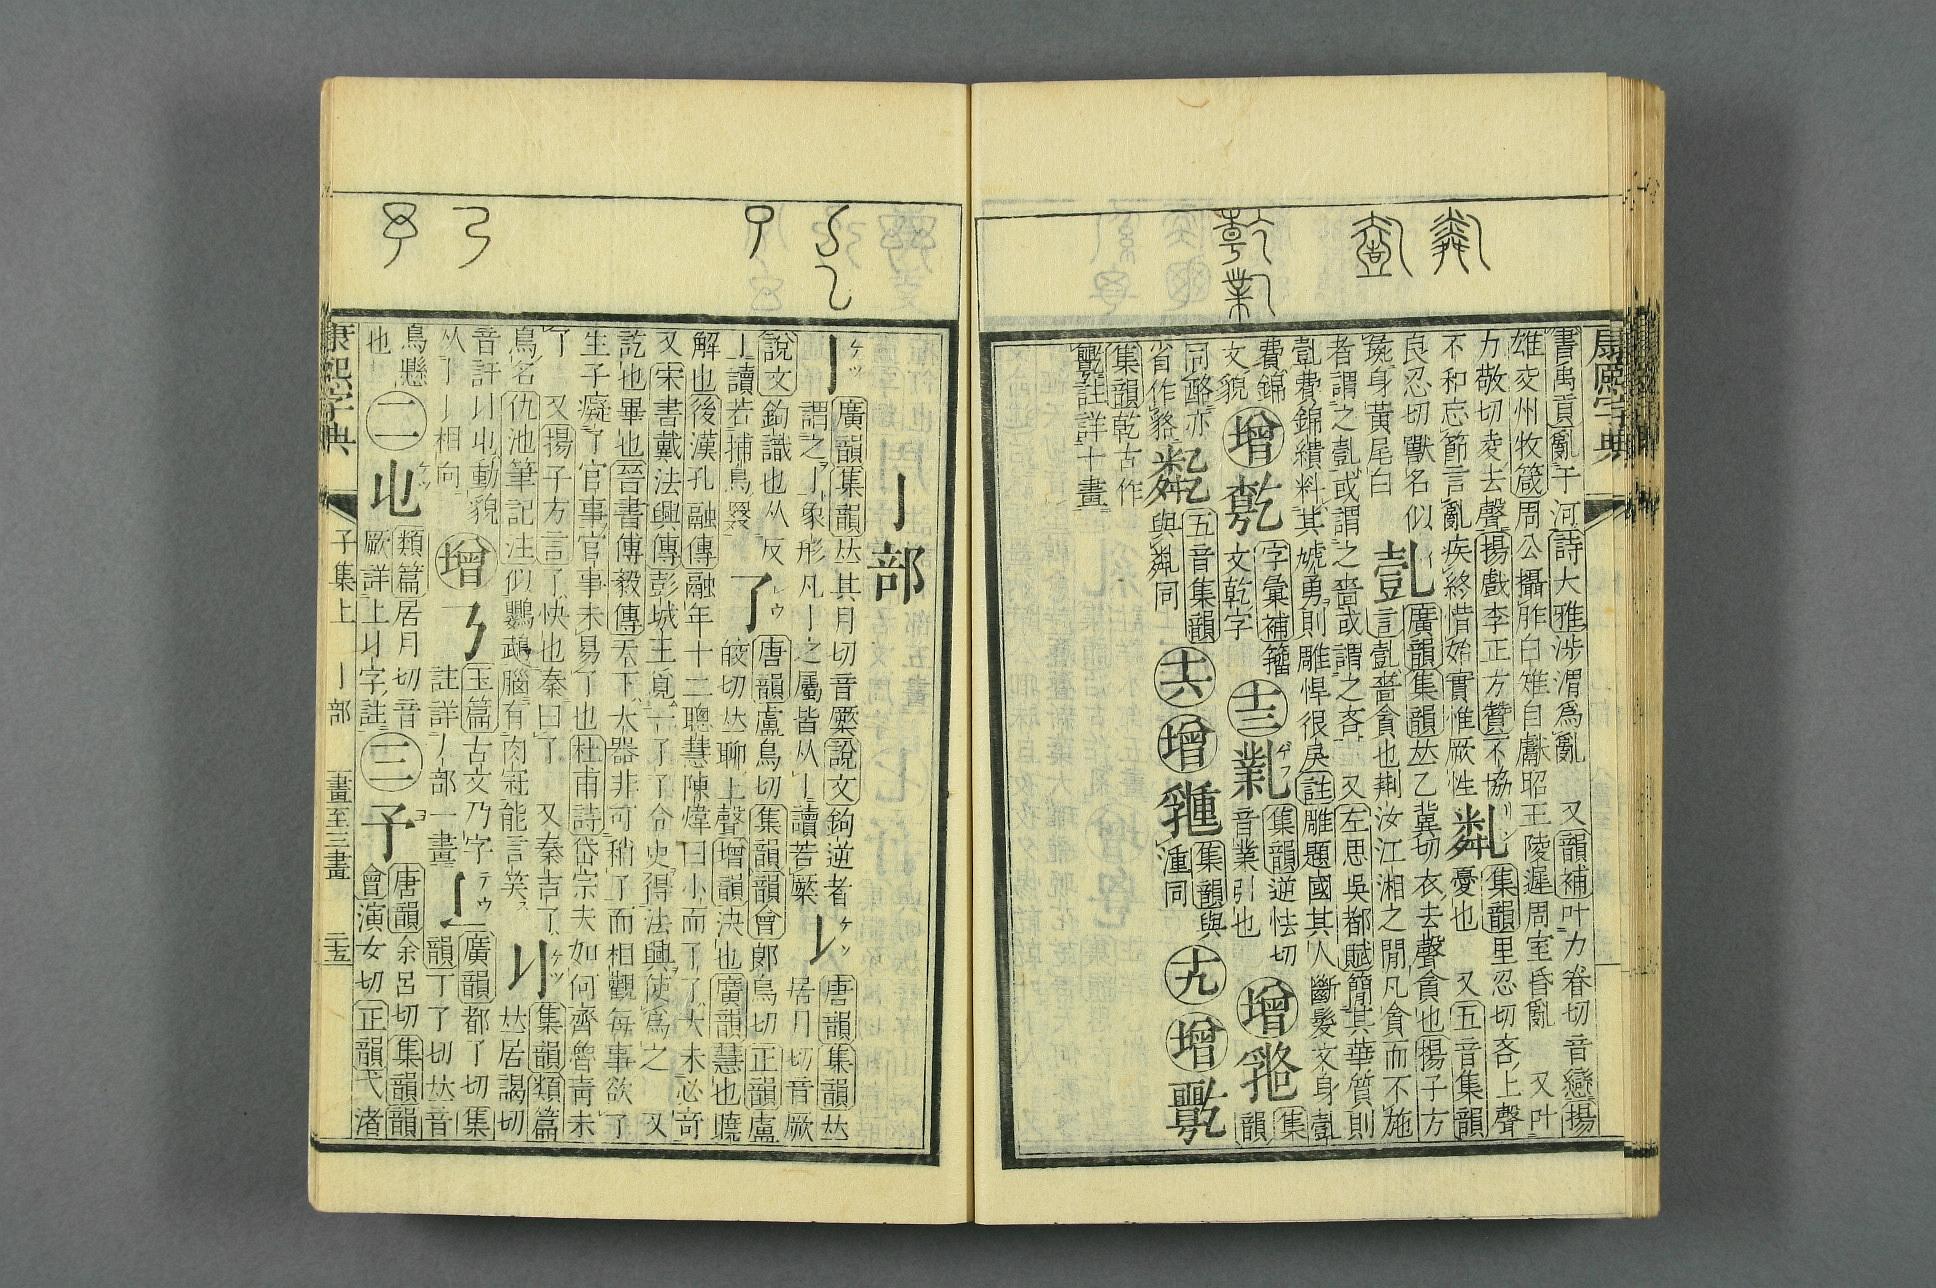 康熙字典
書禹貢亂于河詩大雅涉渭爲亂 又韻補叶力眷切音戀揚
雄交州牧箴周公攝胙白雉自獻昭王陵遲周室昏亂 又叶
力敬切夌去聲揚戲李正方贊不協
不和忘節言亂疾終惜始實惟厥性
㐭集韻里忍切吝上聲
憂也 又五音集韻
良忍切獸名似
㹸身黃尾白
㐖廣韻集韻𠀤乙冀切衣去聲貪也揚子方
言㐖嗇貪也荆汝江湘之閒凡貪而不施
者謂之㐖或謂之嗇或謂之吝 又左思吳都賦簡其華質則
㐖費錦繢料其虓勇則雕悍很戾註雕題國其人斷髮文身㐖
費錦
文貌
增乾字彙補籀
文乾字
十三
集韻逆怯切
音業引也
增
集
韻
同酪亦
省作
五音集韻
與同
十六
增
集韻與
湩同
十九
增
集韻乾古作
註詳十畫
亅部
亅廣韻集韻𠀤其月切音橜說文鉤逆者
謂之亅象形凡亅之屬皆从亅讀若橜
唐韻集韻𠀤
居月切音厥
說文鉤識也从反
亅讀若捕鳥罬
了唐韻盧鳥切集韻韻會郎鳥切正韻盧
皎切𠀤聊上聲增韻決也廣韻慧也曉
解也後漢孔融傳融年十二聰慧陳煒曰小而了了大未必奇
又宋書戴法興傳彭城王覓一了了令史得法興使爲之 又
訖也畢也晉書傅毅傳天下大器非可稍了而相觀每事欲了
生子癡了官事官事未易了也杜甫詩岱宗夫如何齊魯靑未
了 又揚子方言了快也秦曰了 又秦吉了
鳥名仇池筆記注似鸚鵡腦有肉冠能言笑
集韻類篇
𠀤居謁切
音訐
動貌
从了
相向
增
玉篇古文乃字
註詳丿部一畫
廣韻都了切集
韻丁了切𠀤音
鳥懸
也
二
類篇居月切音
厥詳上字註
三
予唐韻余呂切集韻韻
會演女切正韻弋渚
康熙字典
子集上 亅部 一畫至三畫
二五